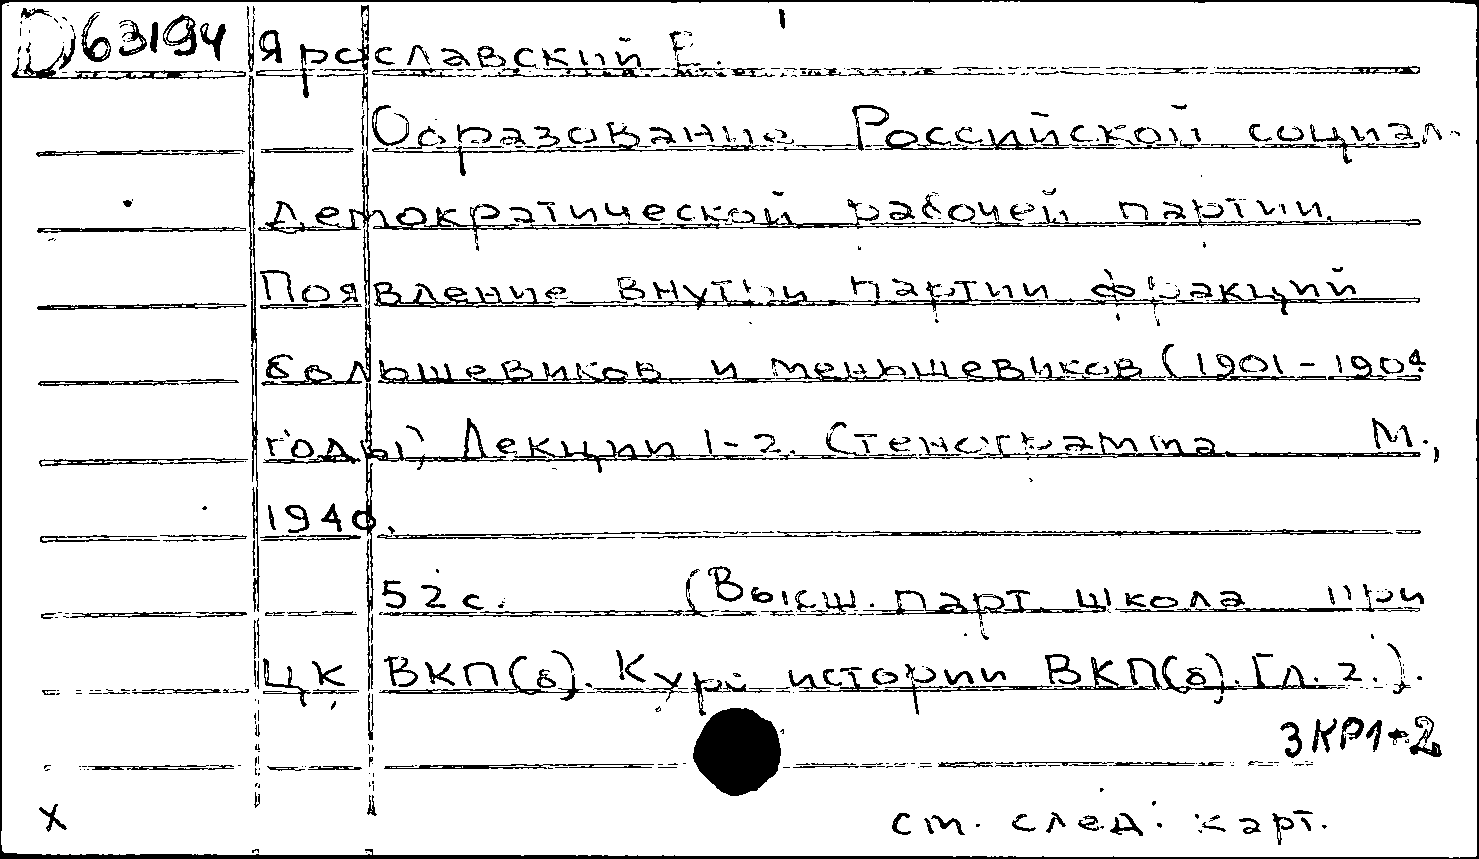 D63194 Ярославский Е.
Образование Российской социал-
демократической рабочей партии.
Появление внутри партии фракций
большевиков и меньшевиков (1901-1904
годы), Лекции 1-2. Стенограмма. М.,
1940.
52 с. (Высш. парт. школа при
ЦК ВКП(б). Курс истории ВКП(б). [л. 2.).
3КР1+2
x см. след. карт.